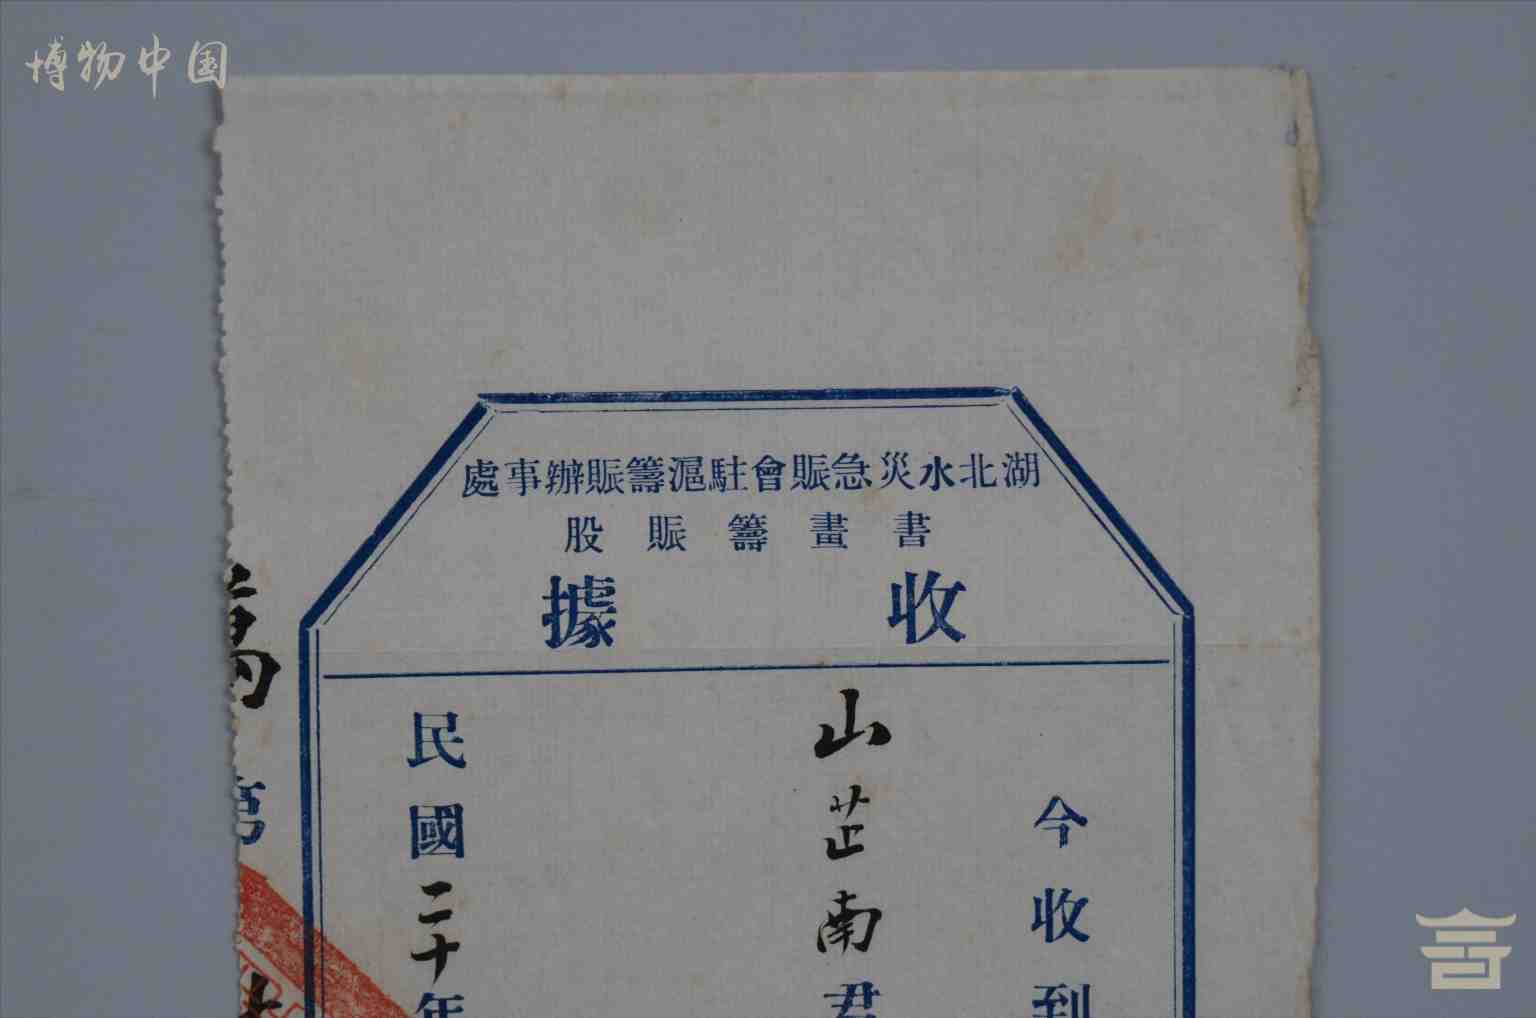 博物中国
湖北水災急賑會駐滬籌賑辦事處
書畫籌賑股
收據
今收到
山芷南君
民國二十年